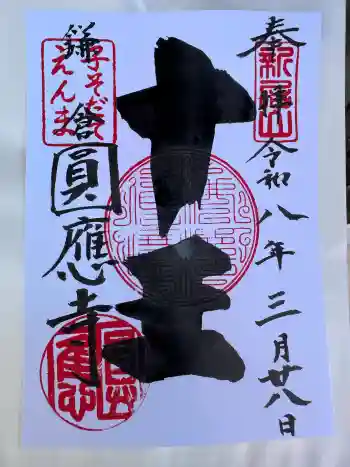 奉拝
新居山
令和八年三月廿八日
十王
鎌倉
子そだて
えんま
圓應寺